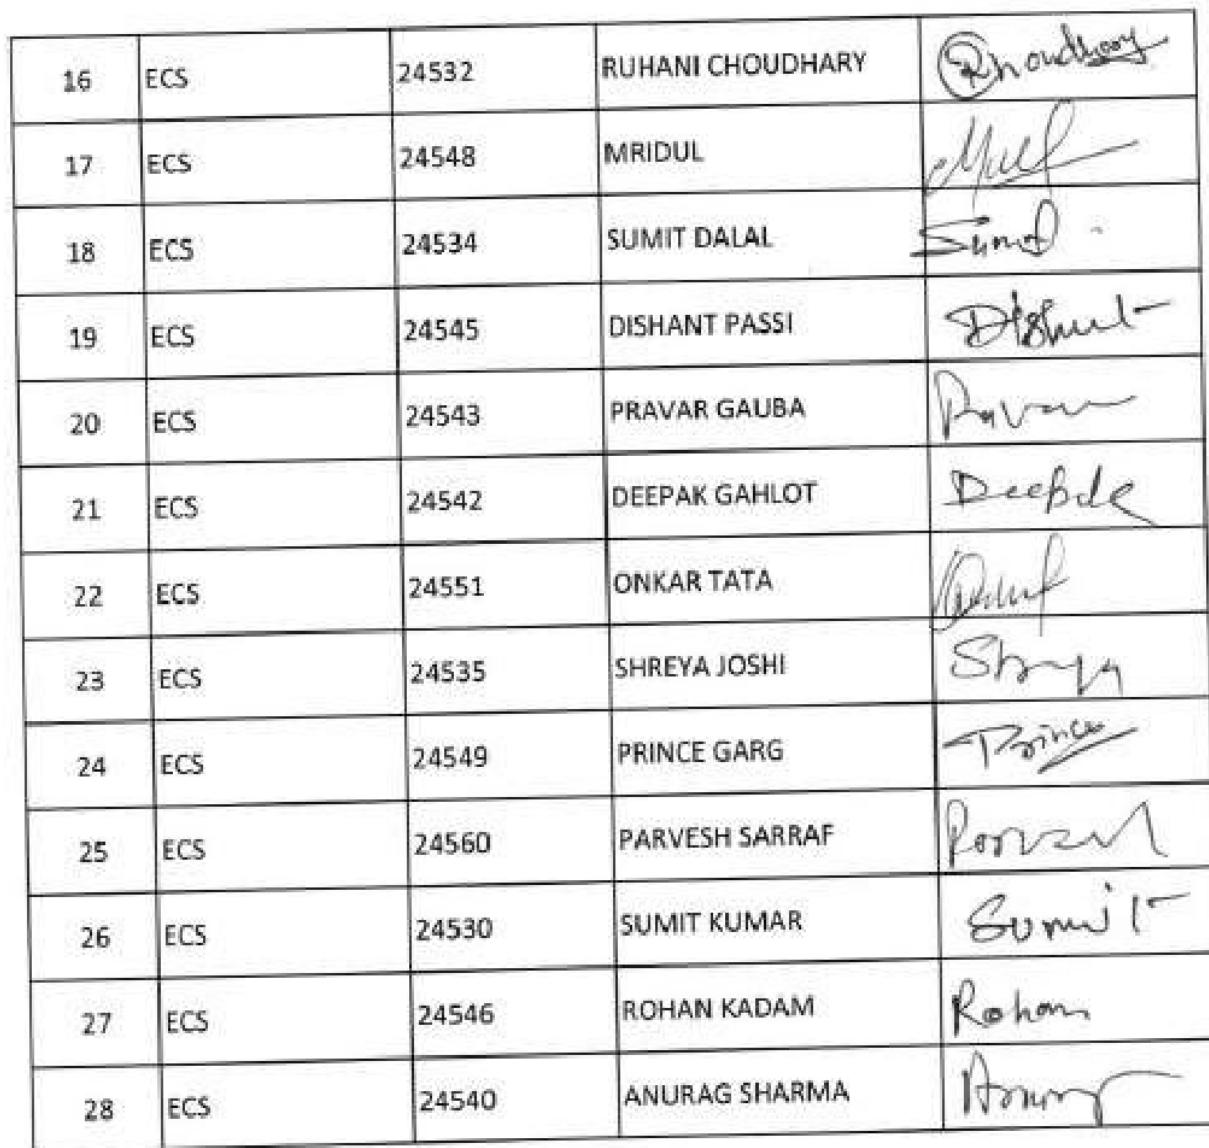 16 ECS 24532 RUHANI CHOUDHARY RChoudhary
17 ECS 24548 MRIDUL
18 ECS 24534 SUMIT DALAL Sumit
19 ECS 24545 DISHANT PASSI Dishant
20 ECS 24543 PRAVAR GAUBA Pravar
21 ECS 24542 DEEPAK GAHLOT Deepak
22 ECS 24551 ONKAR TATA
23 ECS 24535 SHREYA JOSHI Shreya
24 ECS 24549 PRINCE GARG Prince
25 ECS 24560 PARVESH SARRAF
26 ECS 24530 SUMIT KUMAR Sumit
27 ECS 24546 ROHAN KADAM Rohan
28 ECS 24540 ANURAG SHARMA Anurag